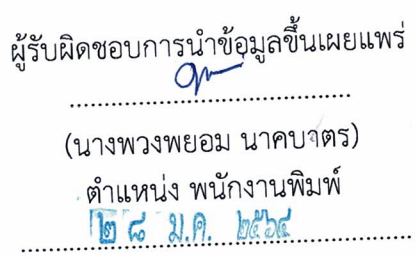 ผู้รับผิดชอบการนำข้อมูลขึ้นเผยแพร่
(นางพวงพยอม นาคบาตร)
ตำแหน่ง พนักงานพิมพ์
๒๘ ม.ค. ๒๕๖๔